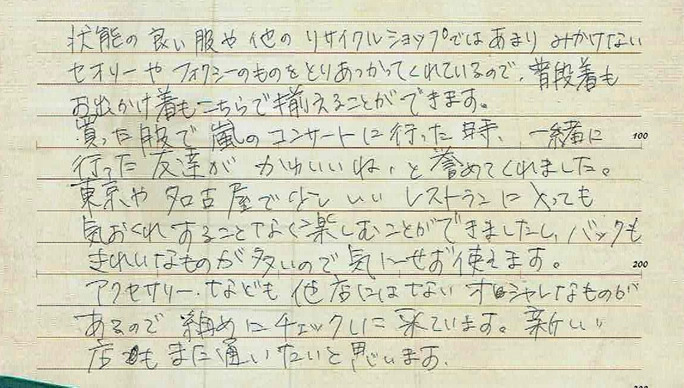 状態の良い服や他のリサイクルショップではあまりみかけない
セオリーやフォクシーのものをとりあつかってくれているので、普段着も
お出かけ着もこちらで揃えることができます。
買った服で嵐のコンサートに行った時、一緒に
100
行った友達がかわいいね、と誉めてくれました。
東京や名古屋で少しいいレストランにとっても
気おくれすることなく楽しむことができましたし、バックも
きれいなものが多いので気にせず使えます。
200
アクセサリーなども他店にはないオシャレなものが
あるので纏めにチェックしに来ています。新しい
店でもまた通いたいと思います。